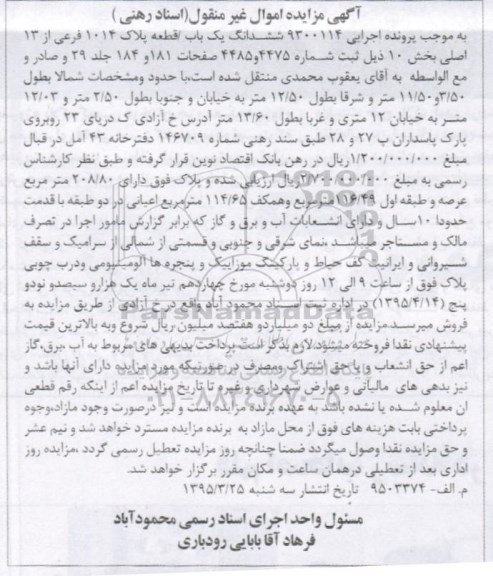 آگهی مزایده اموال غیر منقول(اسناد رهنی )
به موجب پرونده اجرایی ۹۳۰۰۱۱۴ ششدانگ یک باب /قطعه پلاک ۱۰۱۴ فرعی از ۱۳
اصلی بخش ۱۰ ذیل ثبت شماره ۴۴۷۵و۴۴۸۵ صفحات ۱۸۱و ۱۸۴ جلد ۲۹ و صادر و
مع الواسطه به آقای یعقوب محمدی منتقل شده است،با حدود ومشخصات شمالا بطول
۳/۵۰و۱۱/۵۰ متر و شرقا بطول ۱۲/۵۰ متر به خیابان و جنوبا بطول ۲/۵۰ متر و ۱۲/۰۳
متـر به خیابان ۱۲ متری و غربا بطول ۱۳/۶۰ متر آدرس خ آزادی ک دریای ۲۳ روبروی
پارک پاسداران پ ۲۷ و ۲۸ طبق سند رهنی شماره ۱۴۶۷۰۹ دفترخانه ۴۳ آمل در قبال
مبلغ ۱/۲۰۰/۰۰۰/۰۰۰ریال در رهن بانک اقتصاد نوین قرار گرفته و طبق نظر کارشناس
رسمی به مبلغ ریال ارزیابی شده و پلاک فوق دارای ۲۰۸/۸۰ متر مربع
عرصه و طبقه اول ۱۱۶/۴۹مترمربع وهمکف ۱۱۴/۶۵ مترمربع اعیانی در دو طبقه با قدمت
حدودا ۱۰سـال و دارای انشـعابات آب و برق و گاز که برابر گزارش مامور اجرا در تصرف
مالک و مسـتاجر میباشـد ،نمای شرقی و جنوبی و قسمتی از شمالی از سرامیک و سقف
شـیروانی و ایرانیت کف حیاط و پارکینگ موزاییک و پنجره ها آلومینیومی ودرب چوبی
پلاک فوق از ساعت ۹ الی ۱۲ روز دوشنبه مورخ چهاردهم تیر ماه یک هزارو سیصدو نودو
پنج (۱۳۹۵/۴/۱۴) در اداره ثبت اسـناد محمود آباد واقع در خ آزادی از طریق مزایده به
فروش میرسـد مزایده از مبلغ دو میلیاردو هفتصد میلیون ریال شروع وبه بالاترین قیمت
پیشنهادی نقدا فروخته میشود.لازم بذکر است پرداخت بدیهی های مربوط به آب ،برق،گاز
اعم از حق انشعاب و یا حق اشتراک ومصرف در صورتیکه مورد مزایده دارای آنها باشد و
نیز بدهی های مالیاتی و عوارض شهرداری وغیره تا تاریخ مزایده اعم از اینکه رقم قطعی
ان معلوم شـده یا نشده باشد به عهده برنده مزایده است و نیز درصورت وجود مازاد،وجوه
پرداختی بابت هزینه های فوق از محل مازاد به برنده مزایده مسترد خواهد شد و نیم عشر
و حق مزایده نقدا وصول میگردد ضمنا چنانچه روز مزایده تعطیل رسمی گردد ،مزایده روز
اداری بعد از تعطیلی درهمان ساعت و مکان مقرر برگزار خواهد شد.
م. الف- ۹۵۰۳۳۷۴ تاریخ انتشار سه شنبه ۱۳۹۵/۳/۲۵
مسئول واحد اجرای اسناد رسمی محمودآباد
فرهاد آقا بابایی رودباری
ParsNamadData
۰۲۱-۸۸۳۴۹۶۷۰-۵